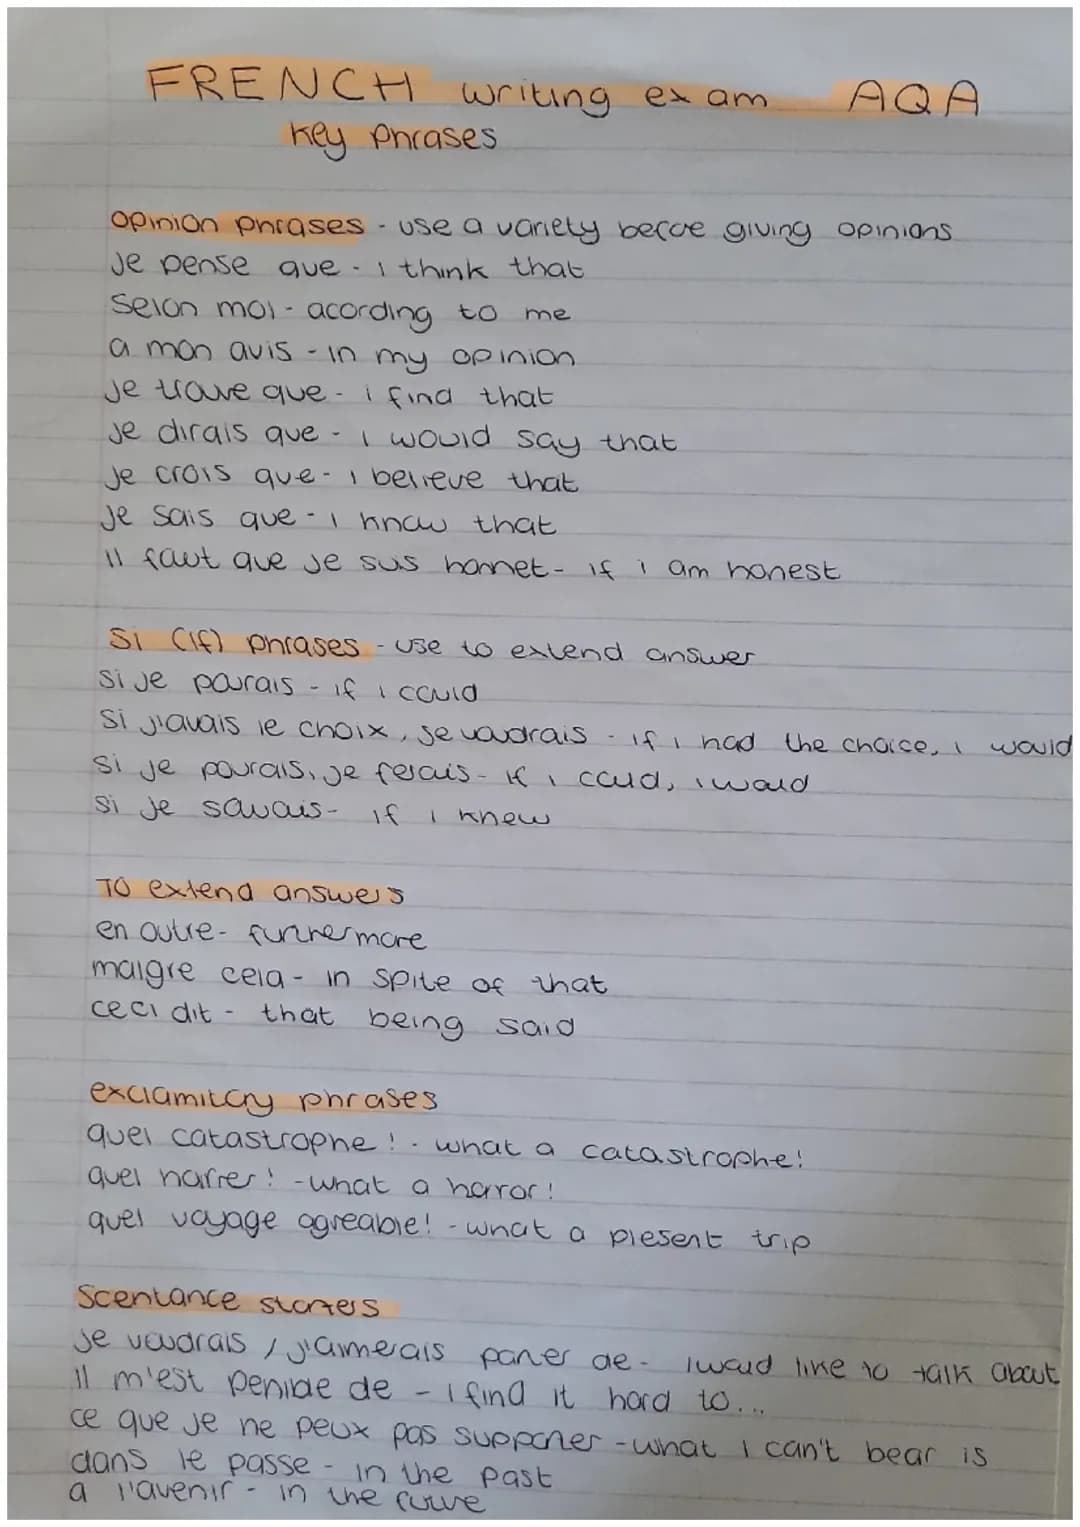 FRENCH writing exam AQA
key phrases
opinion phrases - use a variety berore giving opinions
Je pense que - i think that
Selon moi - acording to me
a mon avis - in my opinion
Je trouve que - i find that
Je dirais que - i would say that
Je crois que - i believe that
Je sais que - i know that
Il faut que Je suis honnet - if i am honest
Si (if) phrases - use to extend answer
Si Je pourais - if i could
Si J'avais le choix, Je voudrais - if i had the choice, i would
Si Je pourais, Je ferais - if i could, i would
Si Je savais - if i knew
TO extend answers
en outre - furthermore
malgre cela - in spite of that
ceci dit - that being said
exclamitory phrases
quel catastrophe! - what a catastrophe!
quel horrer! - what a horror!
quel voyage agreable! - what a plesent trip
Scentance starters
Je voudrais / J'aimerais parler de - i would like to talk about
Il m'est penible de - i find it hard to...
ce que Je ne peux pas supporter - what i can't bear is
dans le passe - in the past
a l'avenir - in the future